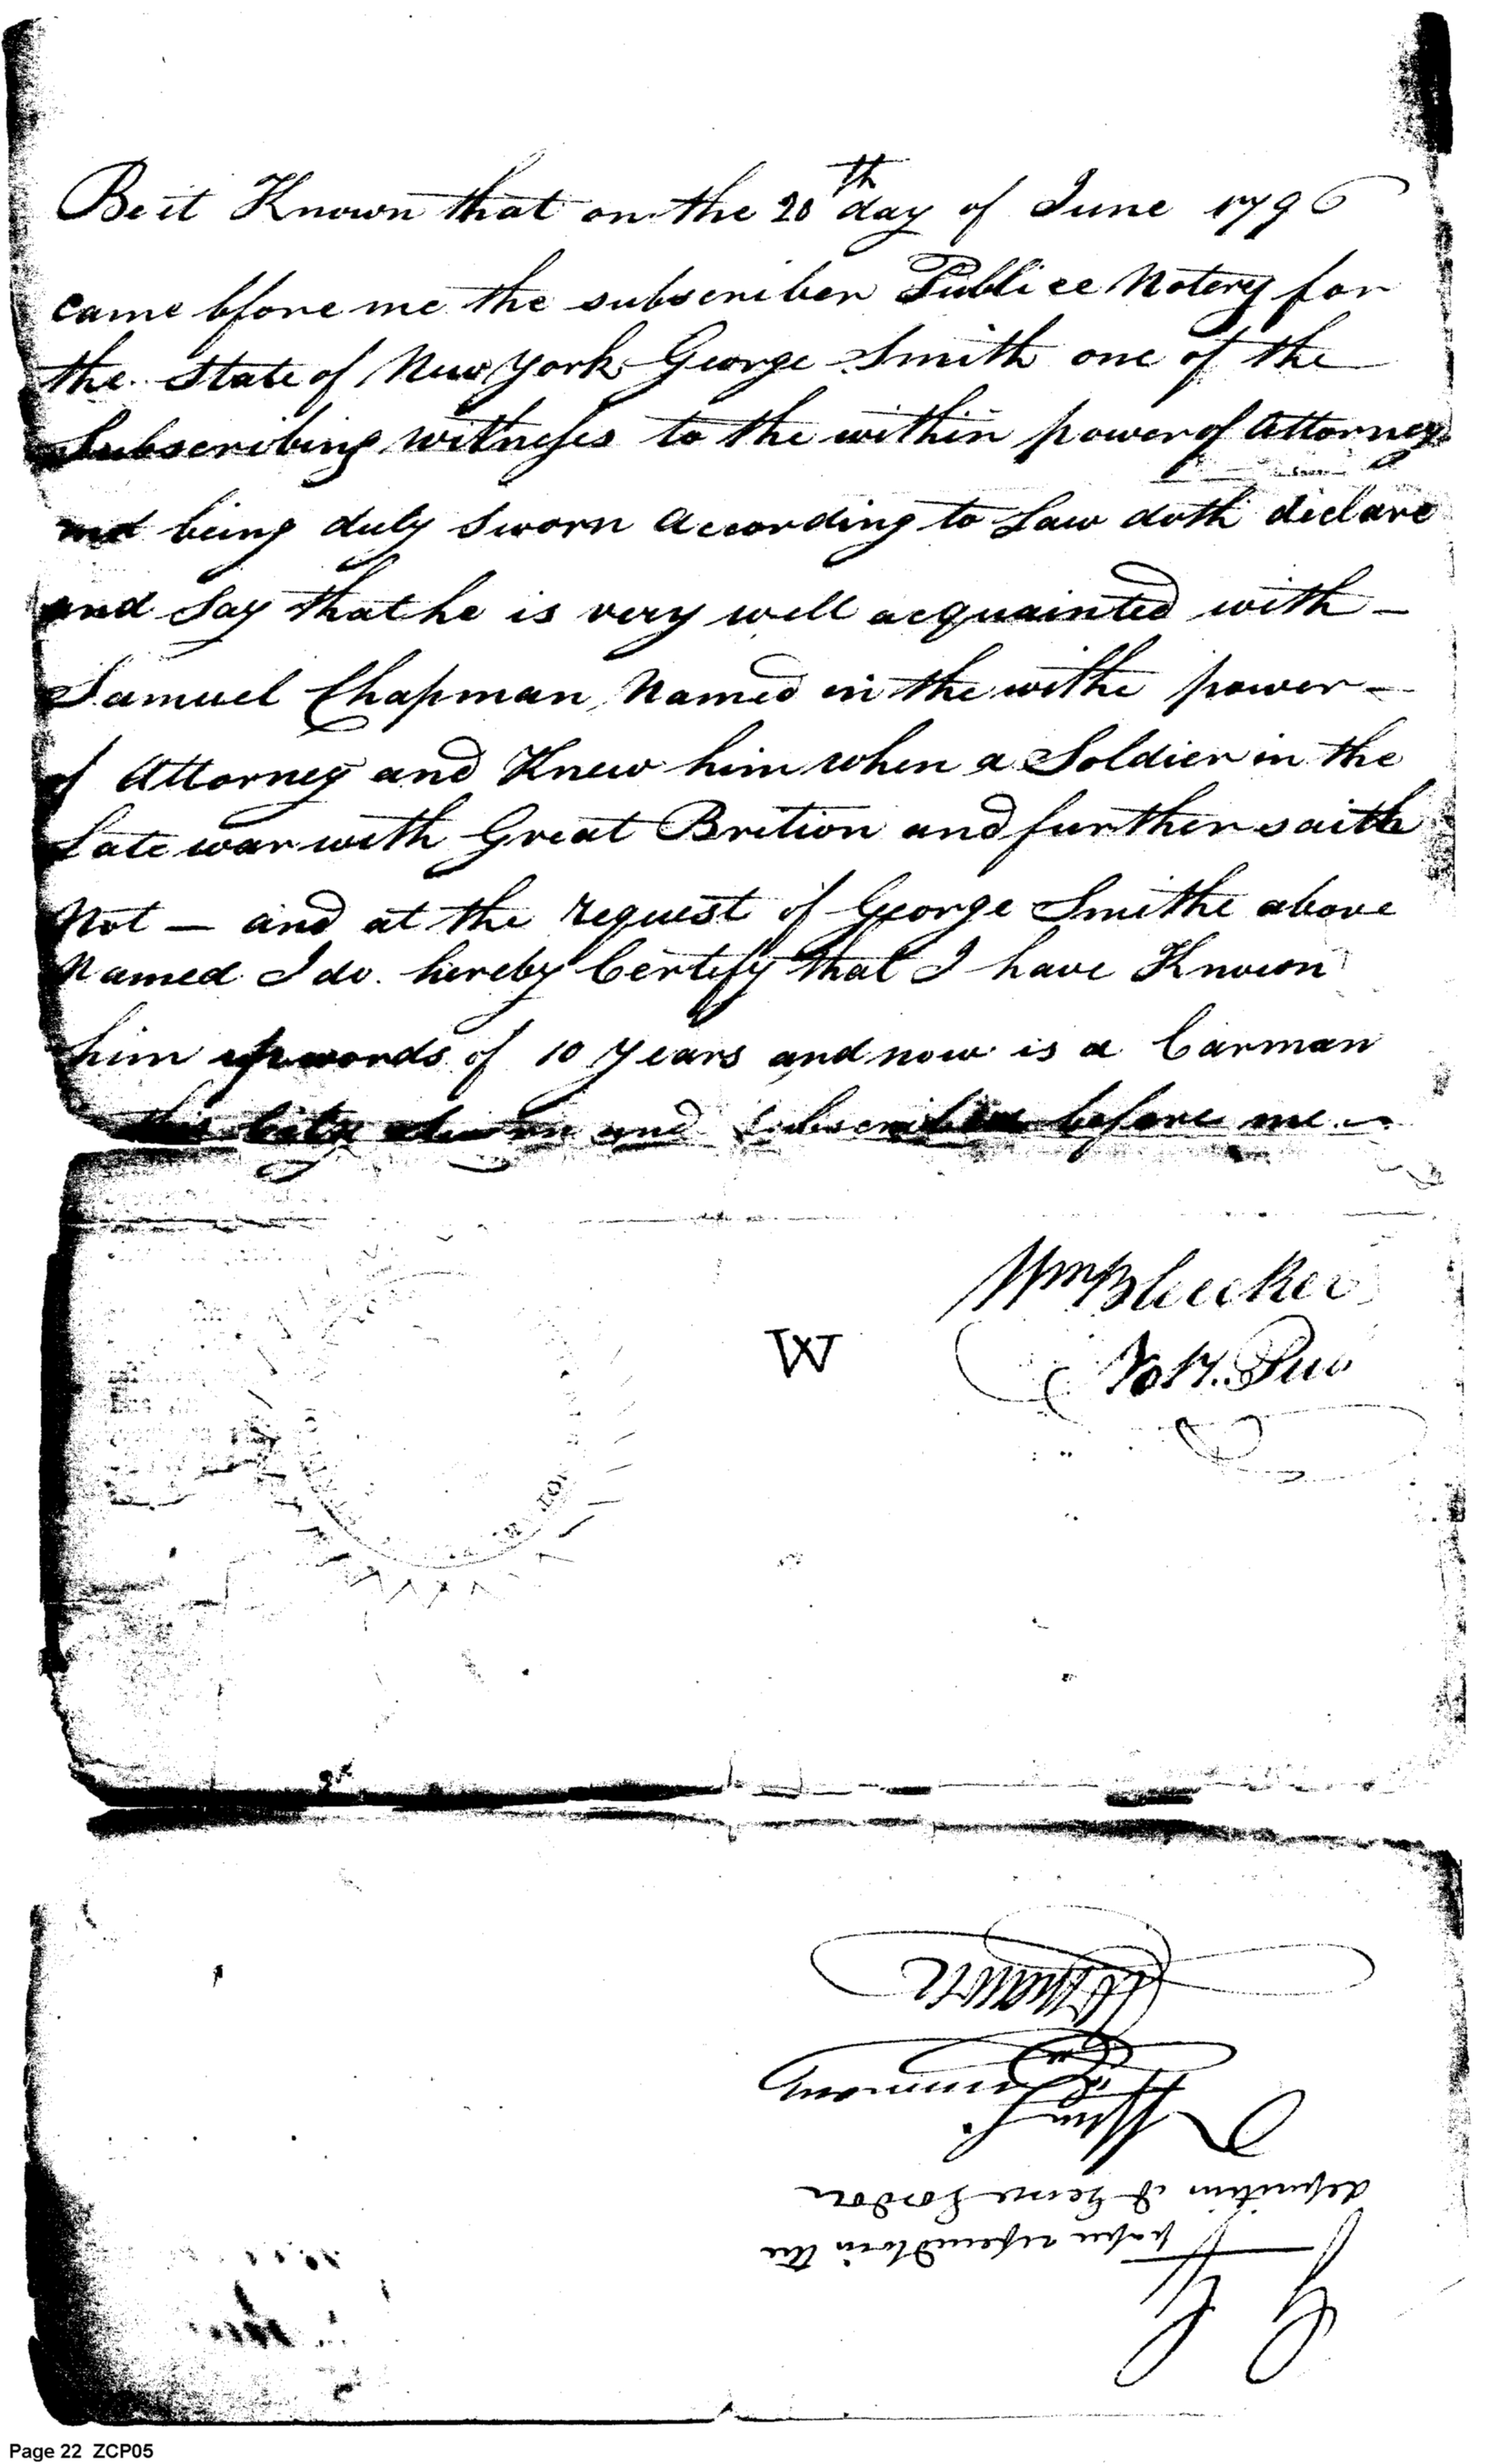 Be it Known that on the 20th day of June 1796
came bfore me the subscriber Publice Notery for
the State of New York George Smith one of the
Subscribing witnesses to the within power of Attorney
and being duly Sworn According to Law doth declare
and Say that he is very well acquainted with -
Samuel Chapman Named in the withe power -
of Attorney and Knew him when a Soldier in the
Late war with Great Brition and further saith
Not - and at the request of George Smithe above
Named I do hereby Certify that I have Known
him upwords of 10 years and now is a Carman
this City and Subscribed before me
Wm Bleecker
Not. Pub
W
paper referred to in the
deposition of
Page 22 ZCP05